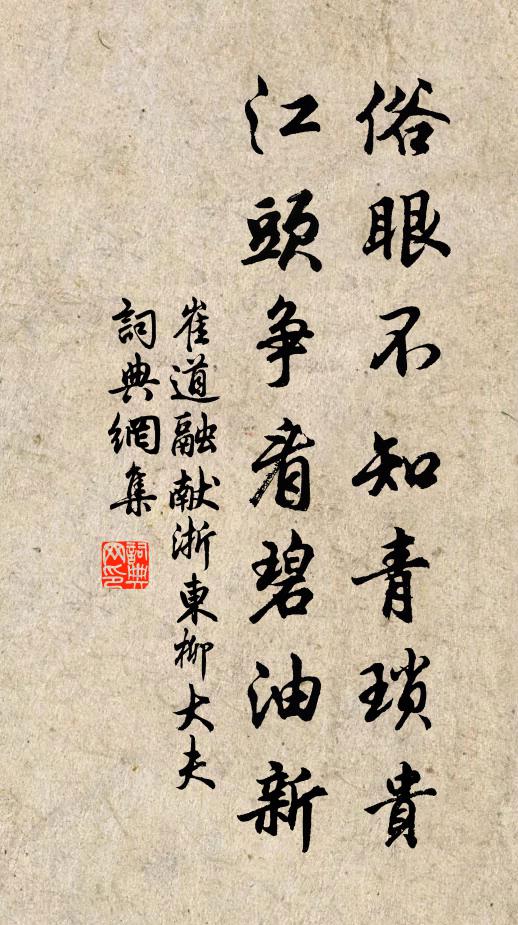 俗眼不知青瑣貴
江頭争看碧油新
崔道融献浙東柳大夫
詞典網集
詞典網印